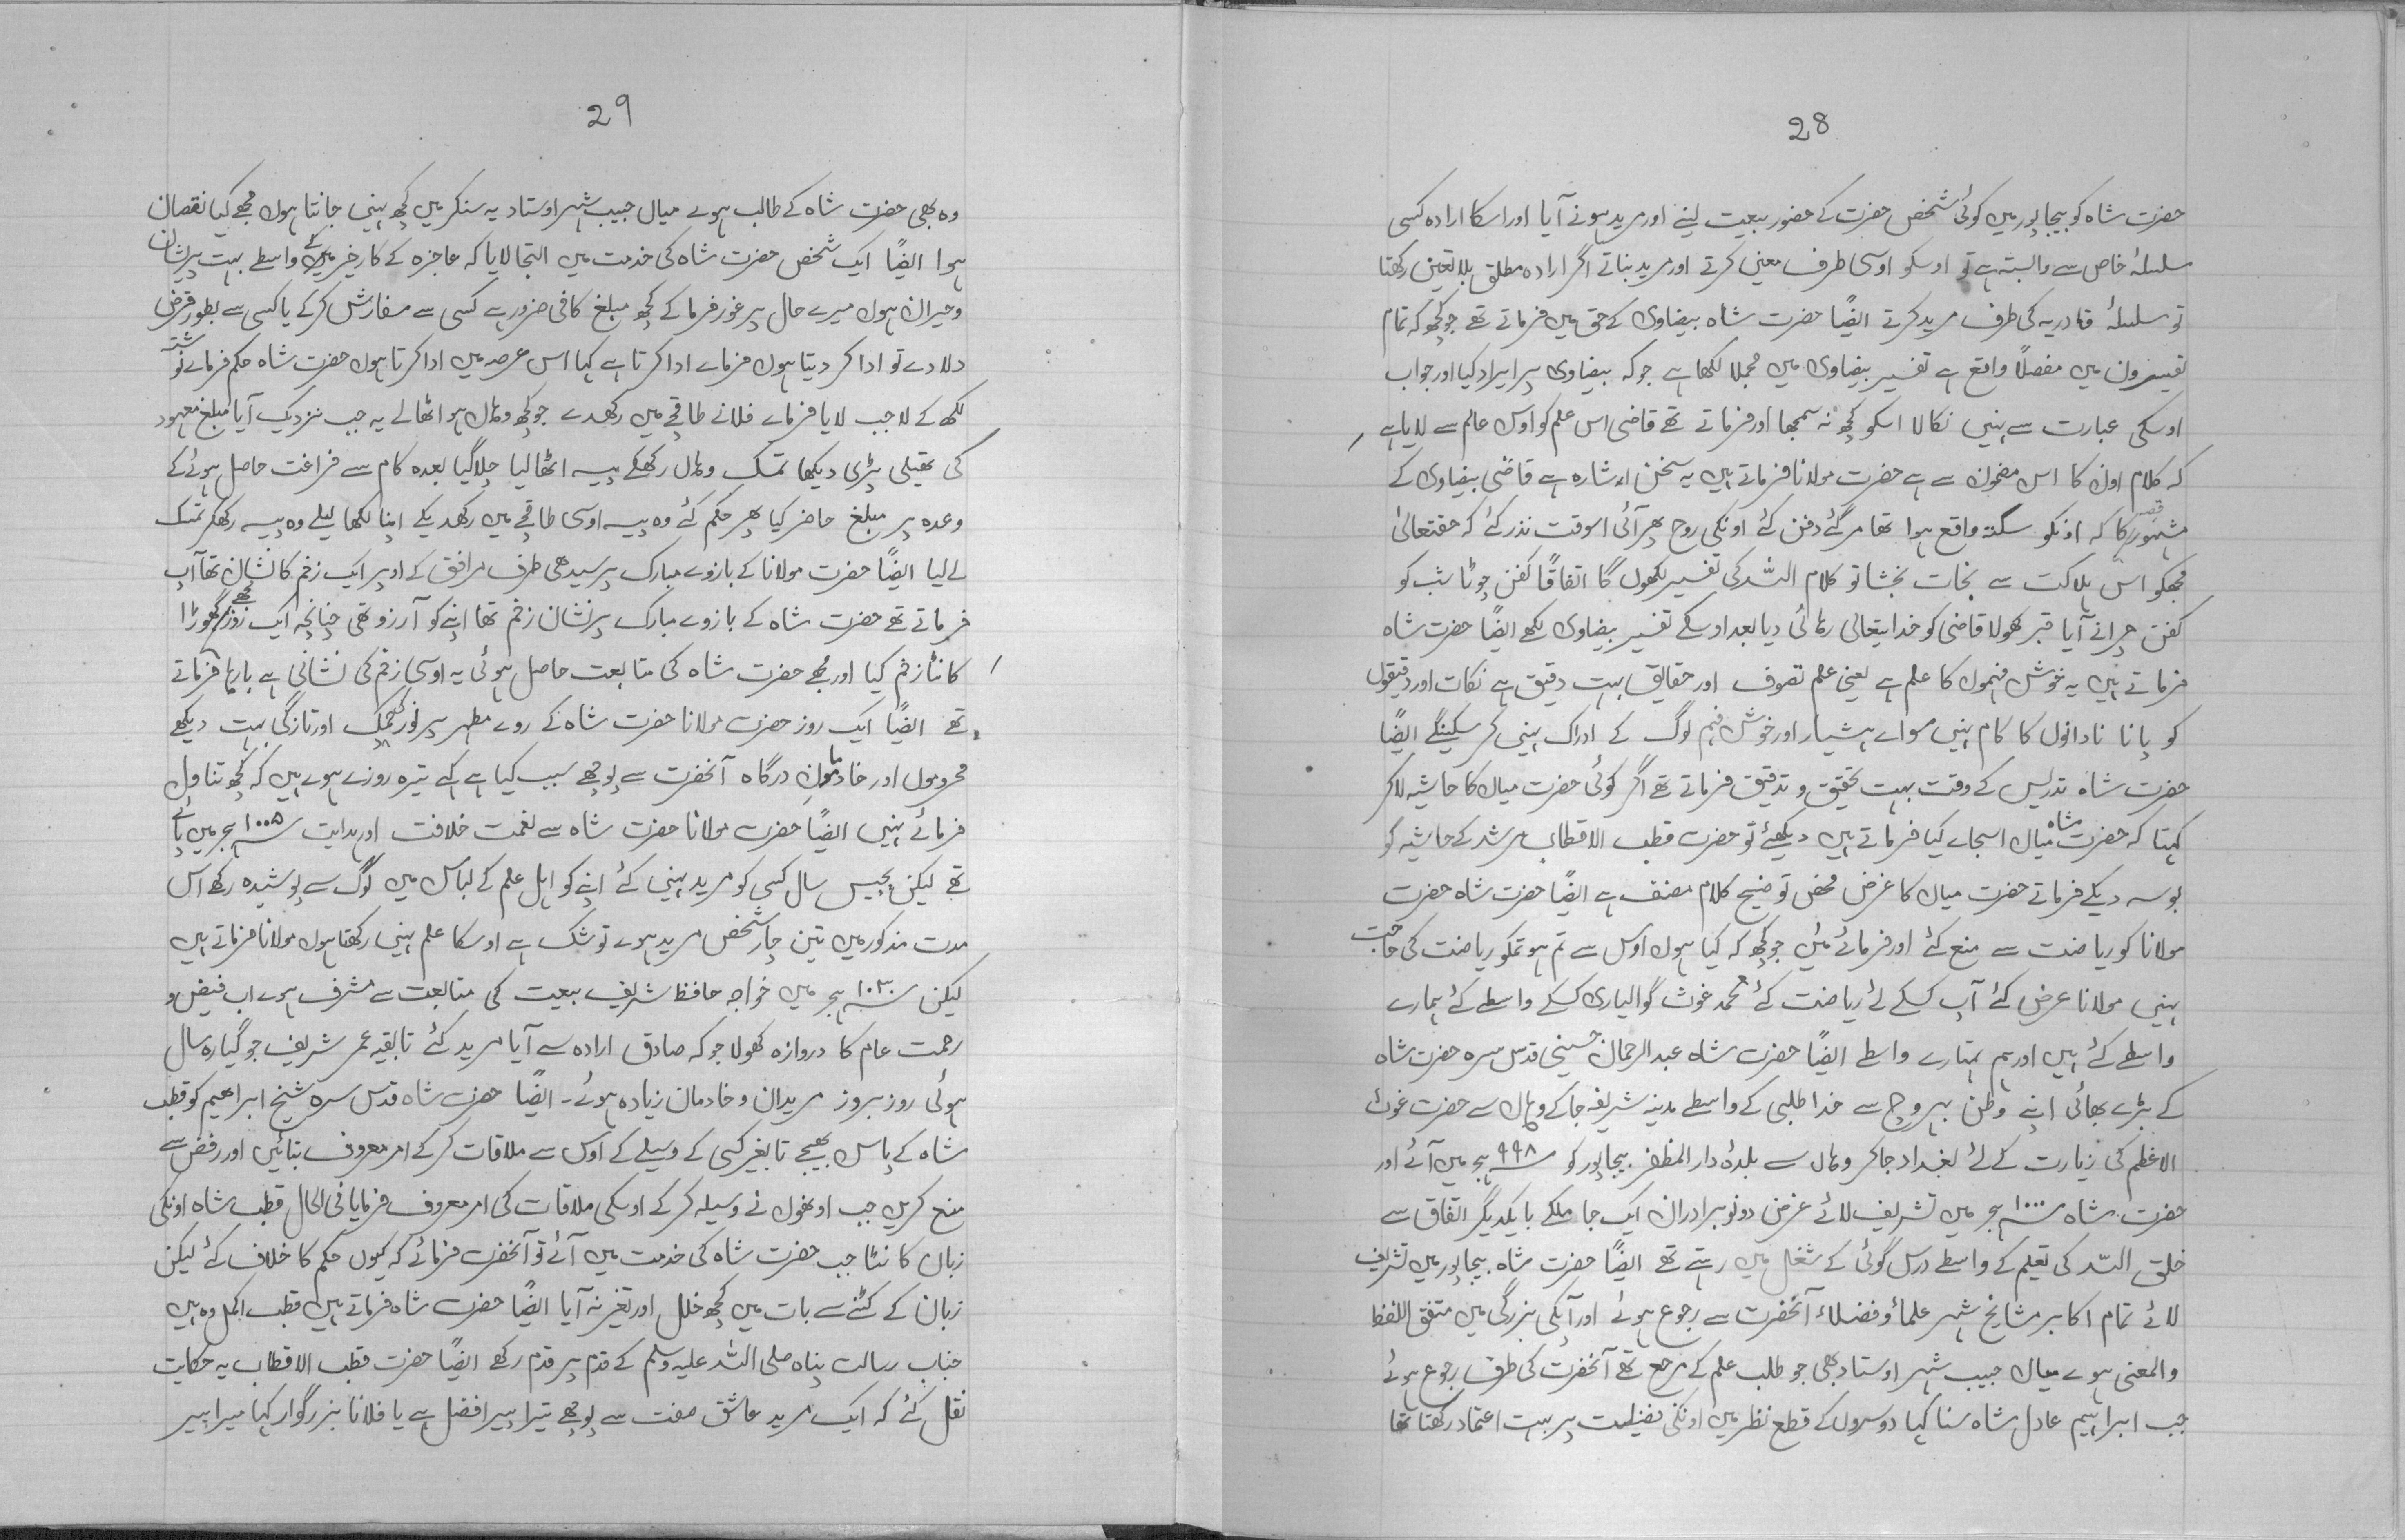 28
حضرت شاہ کو بیجاپور میں کوئی شخص حضرت کے حضور بیعت لینے اور مرید ہونے آیا اور اسکا ارادہ کسی
سلسلۂ خاص سے وابستہ ہے تو اوسکو اوسی طرف معین کرتے اور مرید بناتے اگر ارادہ مطلق بلا تعین رکھتا
تو سلسلۂ قادریہ کی طرف مرید کرتے ایضًا حضرت شاہ بیضاوی کے حق میں فرماتے تھے جو کچھ کہ تمام
تفسیرون میں مفصلًا واقع ہے تفسیر بیضاوی میں مجملا لکھا ہے جو کہ بیضاوی پر ایراد کیا اور جواب
اوسکی عبارت سے نہیں نکالا اسکو کچھ نہ سمجھا اور فرماتے تھے قاضی اس علم کو اوس عالم سے لایا ہے
کہ کلام اون کا اس مضمون سے ہے حضرت مولانا فرماتے ہیں یہ سخن اشارہ ہے قاضی بیضاوی کے
قصہ مشہور کا کہ اونکو سکتہ واقع ہوا تھا مرگئے دفن کئے اونکی روح پھر آئی اسوقت نذر کئے کہ حقتعالیٰ
مجھکو اس ہلاکت سے نجات بخشا تو کلام اللہ کی تفسیر لکھوں گا اتفاقًا کفن چوٹا شب کو
کفن چرانے آیا قبر کھولا قاضی کو خدایتعالی رہائی دیا بعد اوسکے تفسیر بیضاوی لکھے ایضًا حضرت شاہ
فرماتے ہیں یہ خوش فہموں کا علم ہے یعنی علم تصوف اور حقایق بہت دقیق ہے نکات اور دقیقوں
کو پانا نادانوں کا کام نہیں سوائے ہشیار اور خوش فہم لوگ کے ادراک نہیں کر سکینگے ایضًا
حضرت شاہ تدریس کے وقت بہت تحقیق و تدقیق فرماتے تھے اگر کوئی حضرت میاں کا حاشیہ لاکر
کہتا کہ حضرت شاہ میاں اسجائے کیا فرماتے ہیں دیکھئے تو حضرت قطب الاقطاب مرشد کے حاشیہ کو
بوسہ دیکے فرماتے حضرت میاں کا غرض محض توضیح کلام مصنف ہے ایضًا حضرت شاہ حضرت
مولانا کو ریاضت سے منع کئے اور فرمائے میں جو کچھ کہ کیا ہوں اوس سے تم ہو تمکو ریاضت کی حاجت
نہیں مولانا عرض کئے آپ کسکے لئے ریاضت کئے محمد غوث گوالیاری کسکے واسطے کئے ہمارے
واسطے کئے ہیں اور ہم تمہارے واسطے ایضًا حضرت شاہ عبد الرحمان حسینی قدس سرہ حضرت شاہ
کے بڑے بھائی اپنے وطن بہروچ سے خدا طلبی کے واسطے مدینہ شریفہ جاکے وہاں سے حضرت غوث
الاعظم کی زیارت کے لئے بغداد جاکر وہاں سے بلدہ دار المظفر بیجاپور کو ۹۹۸ سنہ ہجر میں آئے اور
حضرت شاہ ۱۰۰۰ سنہ ہجر میں تشریف لائے غرض دونو برادران ایک جا ملکے بایکدیگر اتفاق سے
خلق اللہ کی تعلیم کے واسطے درس گوئی کے شغل میں رہتے تھے ایضًا حضرت شاہ بیجاپور میں تشریف
لائے تمام اکابر مشایخ شہر علماؤ فضلاء آنحضرت سے رجوع ہوئے اور آپکی بزرگی میں متفق اللفظ
والمعنی ہوے میاں حبیب شہر اوستاد بھی جو طلب علم کے مرجع تھے آنحضرت کی طرف رجوع ہوئے
جب ابراہیم عادل شاہ سنا کہا دوسروں کے قطع نظر میں اونکی فضیلت پر بہت اعتماد رکھتا تھا
29
وہ بھی حضرت شاہ کے طالب ہوے میاں حبیب شہر اوستاد یہ سنکر میں کچھ نہیں جانتا ہوں مجھے کیا نقصان
ہوا ایضًا ایک شخص حضرت شاہ کی خدمت میں التجا لایا کہ عاجزہ کے کارخیر کے واسطے بہت پریشان
و حیران ہوں میرے حال پر غور فرما کے کچھ مبلغ کافی ضرور ہے کسی سے سفارش کرکے یا کسی سے بطور قرض
دلادے تو ادا کر دیتا ہوں فرمائے ادا کرتا ہے کہا اس عرصہ میں ادا کرتا ہوں حضرت شاہ حکم فرمائے نوشتہ
لکھ کے لا جب لایا فرمائے فلانے طاقچے میں رکھدے جو کچھ وہاں ہو اٹھالے یہ جب نزدیک آیا مبلغ معہود
کی تھیلی پڑی دیکھا تمسک وہاں رکھکے پیسہ اٹھا لیا چلا گیا بعدہ کام سے فراغت حاصل ہونے کے
وعدہ پر مبلغ حاضر کیا پھر حکم کئے وہ پیسہ اوسی طاقچے میں رکھدیکے اپنا لکھا لیلے وہ پیسہ رکھکر تمسک
لے لیا ایضًا حضرت مولانا کے بازوے مبارک پر سیدھی طرف مرافق کے اوپر ایک زخم کا نشان تھا آپ
فرماتے تھے حضرت شاہ کے بازوے مبارک پر نشان زخم تھا اپنے کو آرزو تھی چنانچہ ایک روز مجھے گھوڑا
کاٹا زخم کیا اور مجھے حضرت شاہ کی متابعت حاصل ہوئی یہ اوسی زخم کی نشانی ہے بارہا فرماتے
تھے ایضًا ایک روز حضرت مولانا حضرت شاہ کے روے مطہر پر نور کی چمک اور تازگی بہت دیکھے
محرموں اور خادمان درگاہ آنحضرت سے پوچھے سبب کیا ہے کہے تیرہ روزے ہوے ہیں کہ کچھ تناول
فرمائے نہیں ایضًا حضرت مولانا حضرت شاہ سے نعمت خلافت اور ہدایت ۱۰۰۵ سنہ ہجر میں پائے
تھے لیکن پچیس سال کسی کو مرید نہیں کئے اپنے کو اہل علم کے لباس میں لوگ سے پوشیدہ رکھے اس
مدت مذکور میں تین چار شخص مرید ہوے تو شک ہے اوسکا علم نہیں رکھتا ہوں مولانا فرماتے ہیں
لیکن ۱۰۳۰ سنہ ہجر میں خواجہ حافظ شریف بیعت کی متابعت سے مشرف ہوے اب فیض و
رحمت عام کا دروازہ کھولا جو کہ صادق ارادہ سے آیا مرید کئے تا بقیہ عمر شریف جو گیارہ سال
ہوئی روز بروز مریدان و خادمان زیادہ ہوئے۔ ایضًا حضرت شاہ قدس سرہ شیخ ابراھیم کو قطب
شاہ کے پاس بھیجے تا بغیر کسی کے وسیلے کے اوس سے ملاقات کرکے امر معروف بتائیں اور رفض سے
منع کریں جب اونھوں نے وسیلہ کرکے اوسکی ملاقات کی امر معروف فرمایا فی الحال قطب شاہ اونکی
زبان کاٹا جب حضرت شاہ کی خدمت میں آئے تو آنحضرت فرمائے کہ کیوں حکم کا خلاف کئے لیکن
زبان کے کٹنے سے بات میں کچھ خلل اور تغیر نہ آیا ایضًا حضرت شاہ فرماتے ہیں قطب اکمل وہ ہیں
جناب رسالت پناہ صلی اللہ علیہ وسلم کے قدم پر قدم رکھے ایضًا حضرت قطب الاقطاب یہ حکایت
نقل کئے کہ ایک مرید عاشق صفت سے پوچھے تیرا پیر افضل ہے یا فلانا بزرگوار کہا میرا پیر